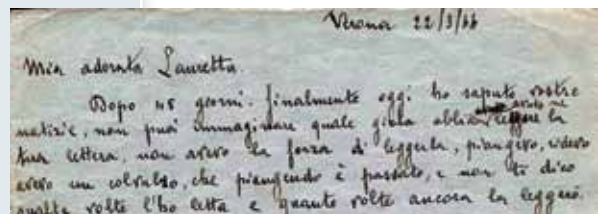 Verona 22/3/44
Mia adorata Lauretta.
Dopo 45 giorni finalmente oggi ho saputo vostre
notizie, non puoi immaginare quale gioia abbia avuto nel leggere la
tua lettera, non avevo la forza di leggerla, piangevo, ridevo
avevo un convulso, che piangendo è passato, e non ti dico
quante volte l'ho letta e quante volte ancora la leggerò.